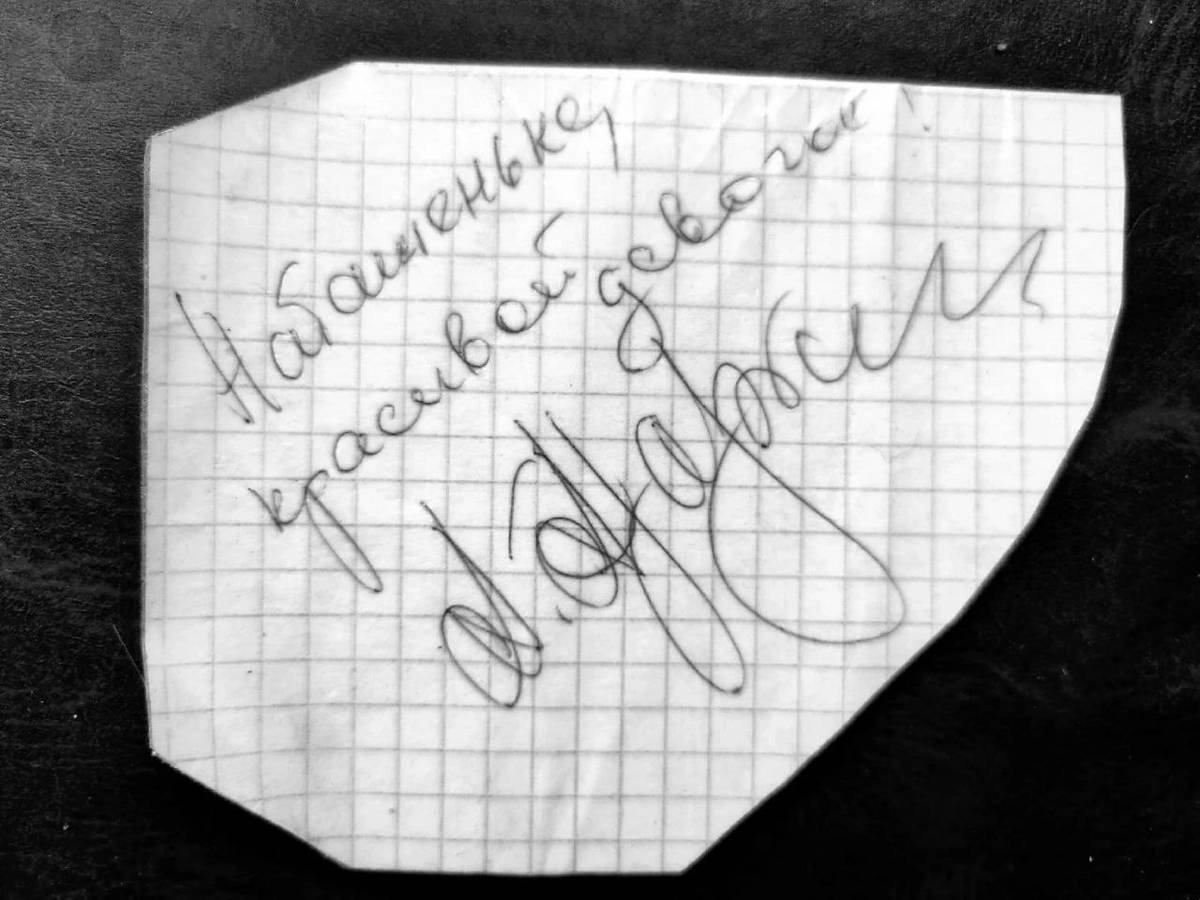 Наташеньке,
красивой девочке!